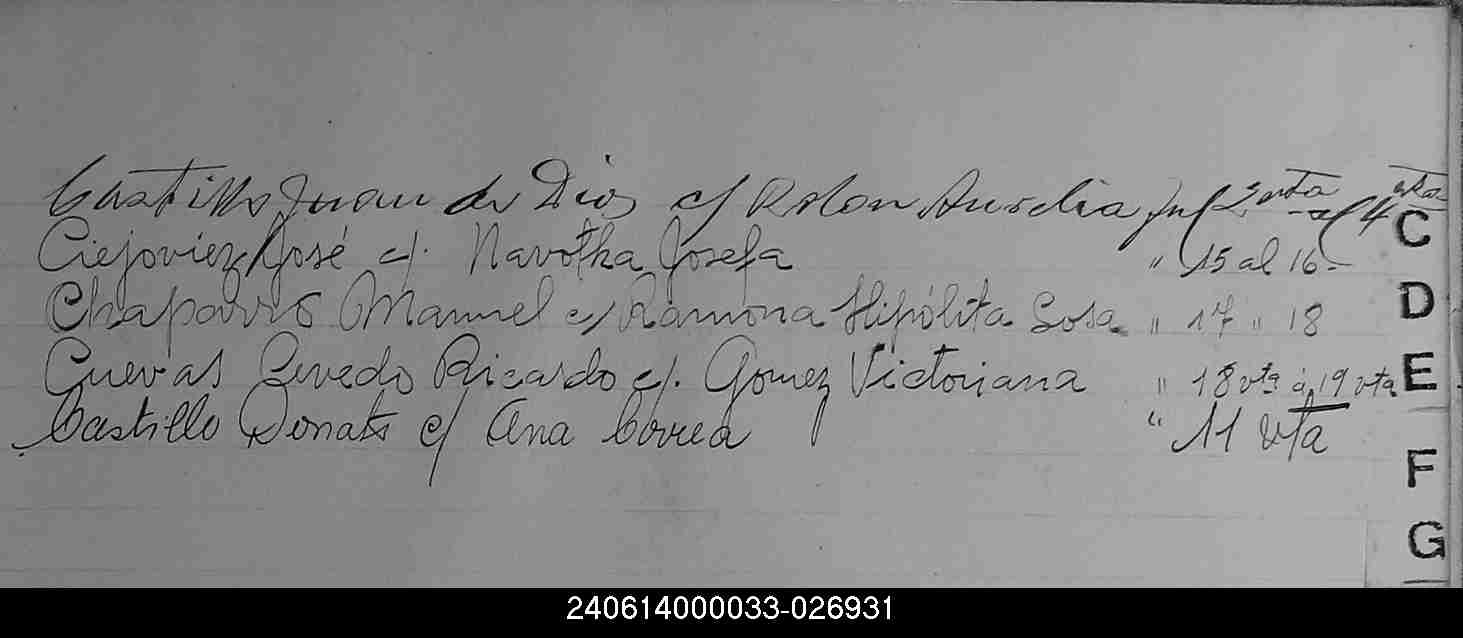 Castillo Juan de Dios c/ Rolon Aurelia fol 2 vta al 4 vta
Ciejoviez José c/. Navotka Josefa " 15 al 16-
Chaparro Manuel c/ Ramona Hipólita Sosa " 17 " 18
Cuevas Ricardo c/. Gomez Victoriana " 18 vta á 19 vta
Castillo Donato c/ Ana Correa " 11 vta
C
D
E
F
G
240614000033-026931